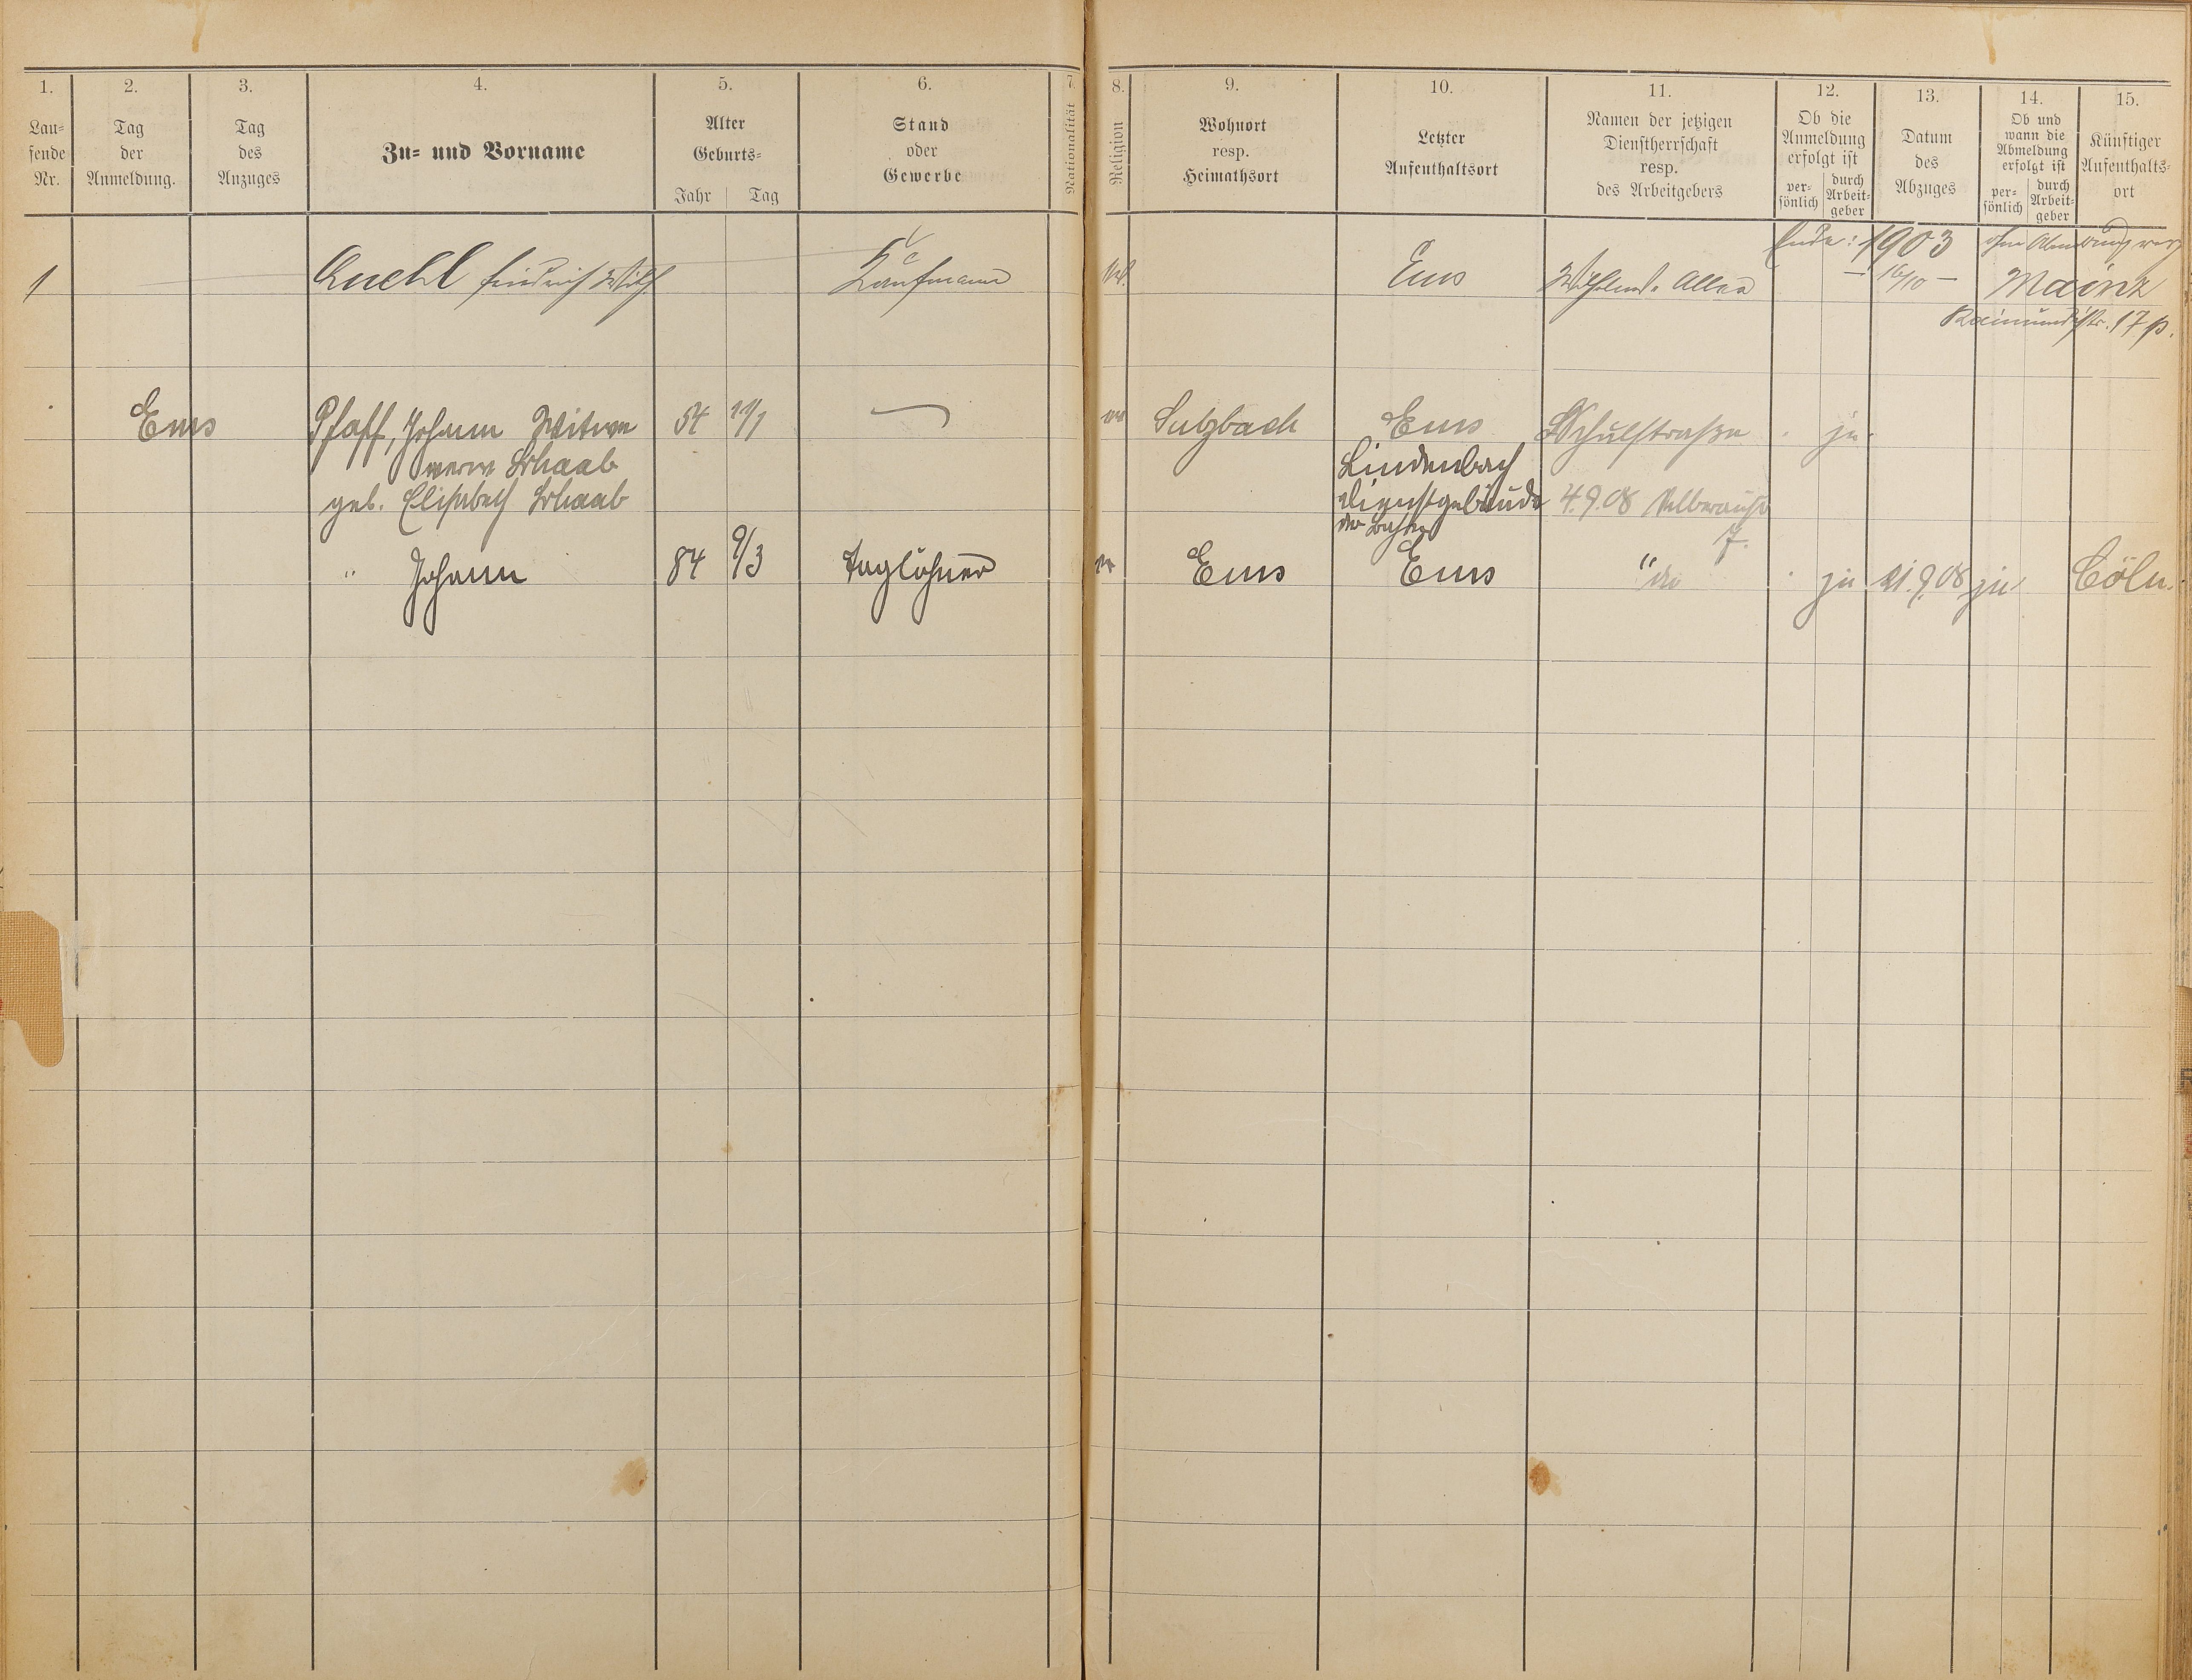 1.
Lau-
fende
Nr.
2.
Tag
der
Anmeldung.
3.
Tag
des
Anzuges
4.
Zu- und Vorname
5.
Alter
Geburts-
Jahr Tag
6.
Stand
oder
Gewerbe
7
Nationalität
8.
Religion
9.
Wohnort
resp.
Heimathsort
10.
Letzter
Aufenthaltsort
11.
Namen der jetzigen
Dienstherrschaft
resp.
des Arbeitgebers
12.
Ob die
Anmeldung
erfolgt ist
per-
sönlich
durch
Arbeit-
geber
13.
Datum
des
Abzuges
14.
Ob und
wann die
Abmeldung
erfolgt ist
per-
sönlich
durch
Arbeit-
geber
15.
Künftiger
Aufenthalts-
ort
Ende: 1903
1 Quehl Friedrich Wilh. Kaufmann Ems Wilhelms Allee 16/10 Mainz
17 p.
Ems Pfaff, Johann Witwe 54 11/1 Sulzbach Ems Schulstraße ja
Schaab Lindenbach
geb. Elisabeth Schaab Dienstgebäude 4.9.08
der Bahn 7.
" Johann 84 9/3 Taglöhner Ems Ems " ja 21.9.08 ja Cöln.